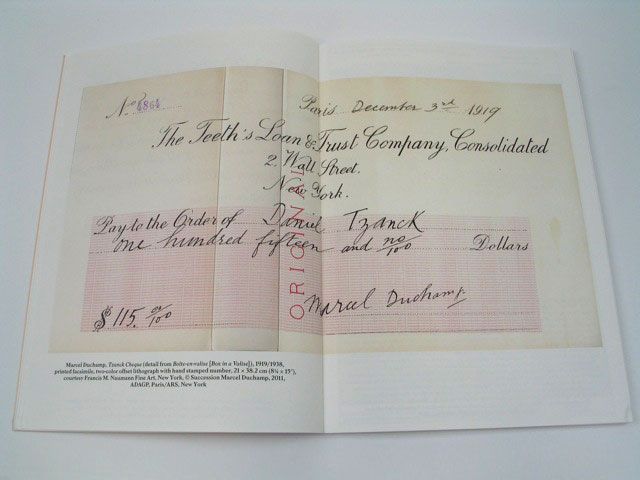 No 4864
Paris December 3rd 1919
The Teeth's Loan & Trust Company, Consolidated
2. Wall Street.
New York.
Pay to the Order of Daniel Tzanck
one hundred fifteen and no/100 Dollars
ORIGINAL
$ 115. 00/100
Marcel Duchamp
Marcel Duchamp, Tzanck Cheque (detail from Boîte-en-valise [Box in a Valise]), 1919/1938,
printed facsimile, two-color offset lithograph with hand stamped number, 21 × 38.2 cm (8¼ × 15"),
courtesy Francis M. Naumann Fine Art, New York, © Succession Marcel Duchamp, 2011,
ADAGP, Paris/ARS, New York